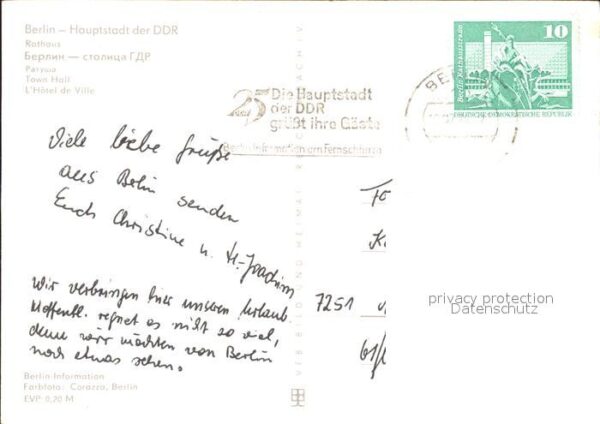 Berlin – Hauptstadt der DDR
Rathaus
Берлин — столица ГДР
Ратуша
Town Hall
L'Hôtel de Ville
25
Die Hauptstadt
der DDR
grüßt ihre Gäste
Berlin-Information am Fernsehturm
BE
10
Berlin, Rathausstraße
DEUTSCHE DEMOKRATISCHE REPUBLIK
Viele liebe Grüße
aus Berlin senden
Euch Christine u. H.-Joachim
Wir verbringen hier unseren Urlaub
Hoffentl. regnet es nicht so viel,
denn wir möchten von Berlin
noch etwas sehen.
7251
61/
privacy protection
Datenschutz
VEB BILD UND HEIMAT
Berlin-Information
Farbfoto: Corazza, Berlin
EVP 0,20 M